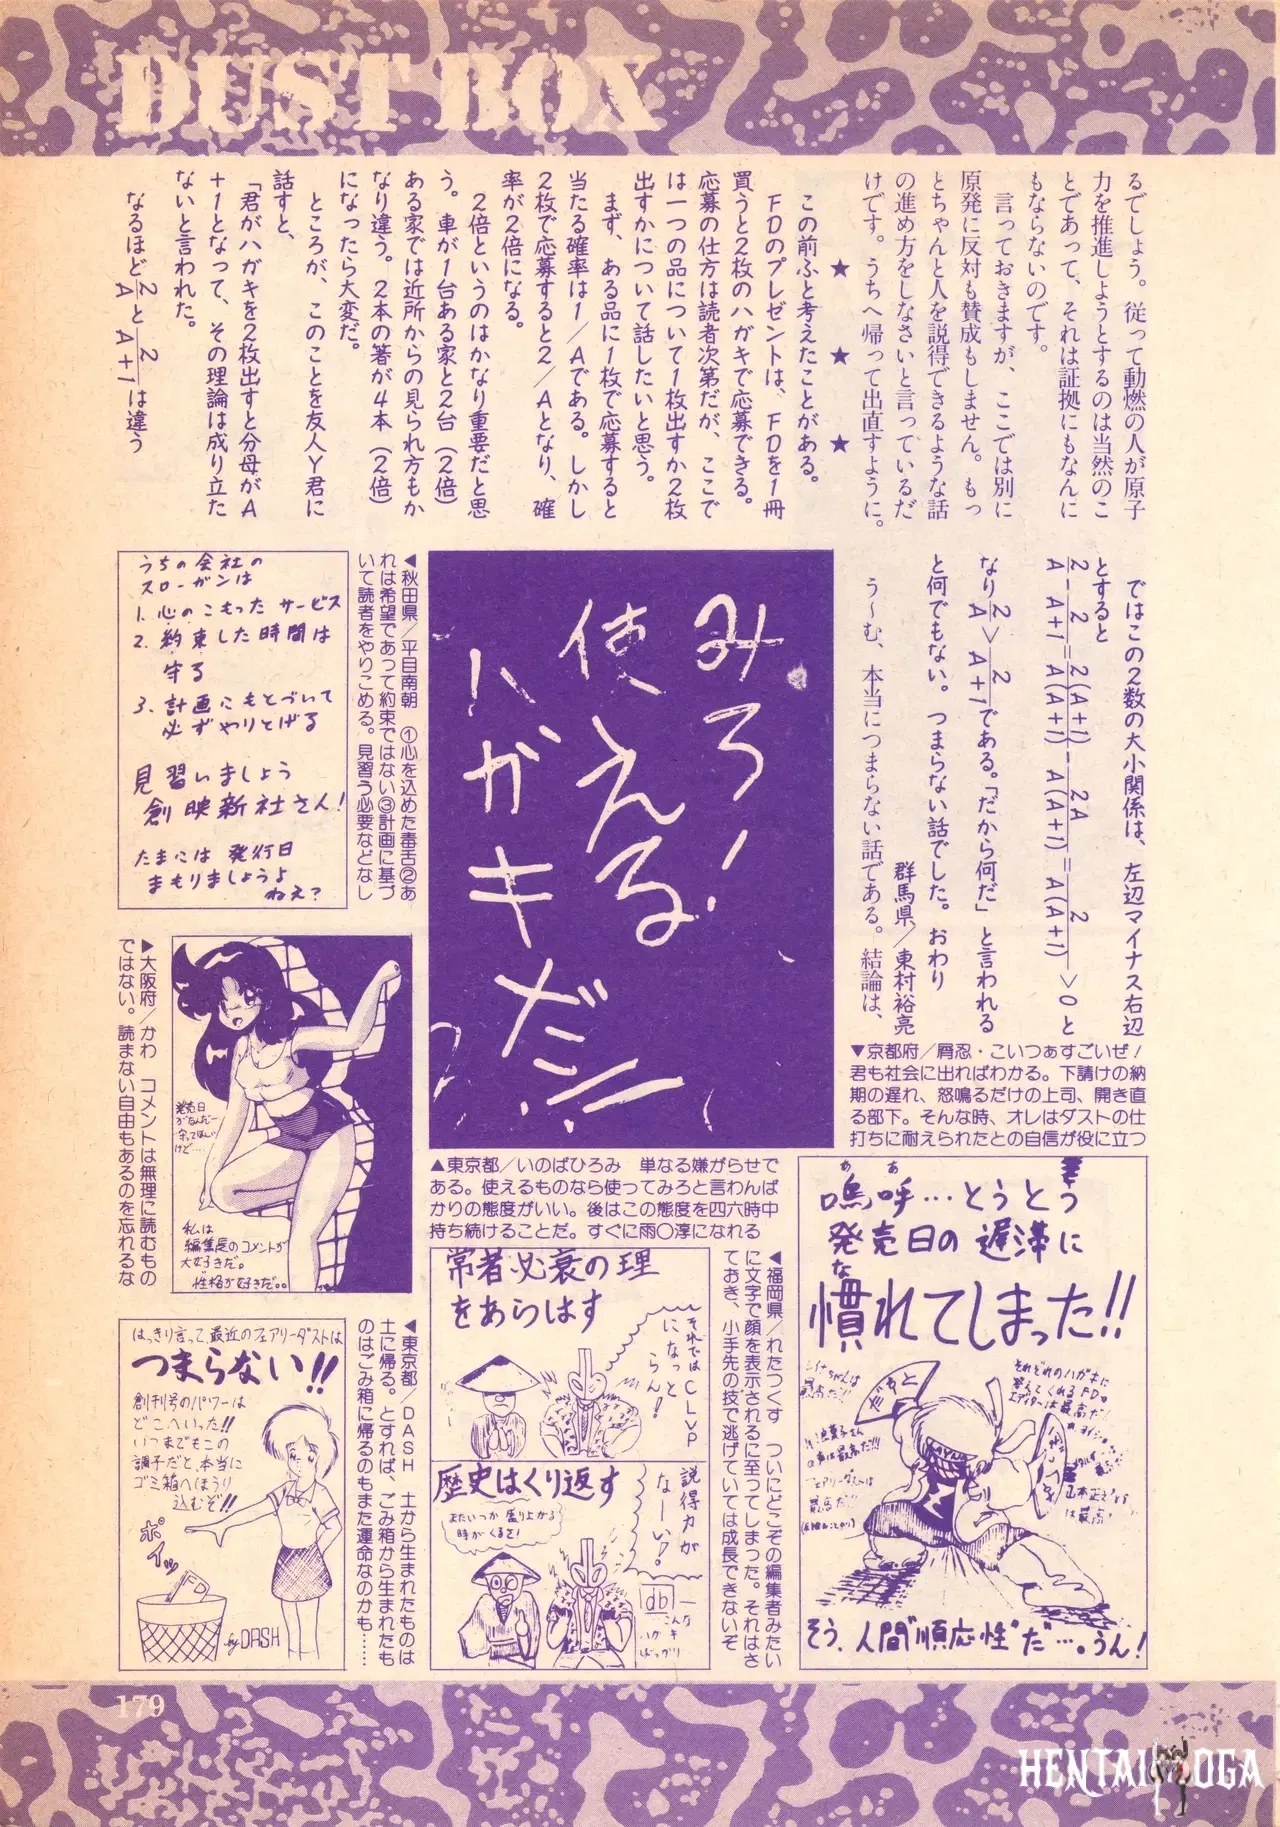 DUST BOX
るでしょう。従って動燃の人が原子
力を推進しようとするのは当然のこ
とであって、それは証拠にもなんに
もならないのです。
言っておきますが、ここでは別に
原発に反対も賛成もしません。もっ
とちゃんと人を説得できるような話
の進め方をしなさいと言っているだ
けです。うちへ帰って出直すように。
★ ★ ★
この前ふと考えたことがある。
FDのプレゼントは、FDを1冊
買うと2枚のハガキで応募できる。
応募の仕方は読者次第だが、ここで
は一つの品について1枚出すか2枚
出すかについて話したいと思う。
まず、ある品に1枚で応募すると
当たる確率は1/Aである。しかし
2枚で応募すると2/Aとなり、確
率が2倍になる。
2倍というのはかなり重要だと思
う。車が1台ある家と2台(2倍)
ある家では近所からの見られ方もか
なり違う。2本の箸が4本(2倍)
になったら大変だ。
ところが、このことを友人Y君に
話すと、
「君がハガキを2枚出すと分母がA
+1となって、その理論は成り立た
ないと言われた。
なるほど2/Aと2/A+1は違う
ではこの2数の大小関係は、左辺マイナス右辺
とすると
2/A - 2/A+1 = 2(A+1)/A(A+1) - 2A/A(A+1) = 2/A(A+1) >0と
なり2/A>2/A+1である。「だから何だ」と言われる
と何でもない。つまらない話でした。おわり
群馬県/東村裕亮
う〜む、本当につまらない話である。結論は、
▼京都府/屑忍・こいつぁすごいぜ!
君も社会に出ればわかる。下請けの納
期の遅れ、怒鳴るだけの上司、開き直
る部下。そんな時、オレはダストの仕
打ちに耐えられたとの自信が役に立つ
みろ!
使える
ハガキだ!!
▲東京都/いのばひろみ 単なる嫌がらせで
ある。使えるものなら使ってみろと言わんば
かりの態度がいい。後はこの態度を四六時中
持ち続けることだ。すぐに雨〇淳になれる
◀秋田県/平目南朝 ①心を込めた毒舌②あ
れは希望であって約束ではない③計画に基づ
いて読者をやりこめる。見習う必要などなし
うちの会社の
スローガンは
1. 心のこもった サービス
2. 約束した時間は
守る
3. 計画にもとづいて
必ずやりとげる
見習いましょう
創映新社さん!
たまには 発行日
まもりましょうよ
ねえ?
▶大阪府/かわ コメントは無理に読むもの
ではない。読まない自由もあるのを忘れるな
発売日
私は
編集長のコメントが
大好きだ。
性格が好きだ。。
嗚呼…とうとう
ああ
発売日の遅滞に
慣れてしまった!!
な
だすと
そう、人間"順応性"だ…。うん!
◀福岡県/れたつくす ついにどこぞの編集者みたい
に文字で顔を表示されるに至ってしまった。それはさ
ておき、小手先の技で逃げていては成長できないぞ
常者必衰の理
をあらはす
それではCLVP
になっと
らん!
歴史はくり返す
またいつか 盛り上がる
時がくるさ!
説得力が
なーい!
db
こんな
ハガキ
ばっかり
◀東京都/DASH 土から生まれたものは
土に帰る。とすれば、ごみ箱から生まれたも
のはごみ箱に帰るのもまた運命なのかも……
はっきり言って、最近のフェアリーダストは
つまらない!!
創刊号のパワーは
どこへいった!!
いつまでもこの
調子だと、本当に
ゴミ箱へほうり
込むぞ!!
ポイッ
FD
by DASH
179
HENTAI OGA